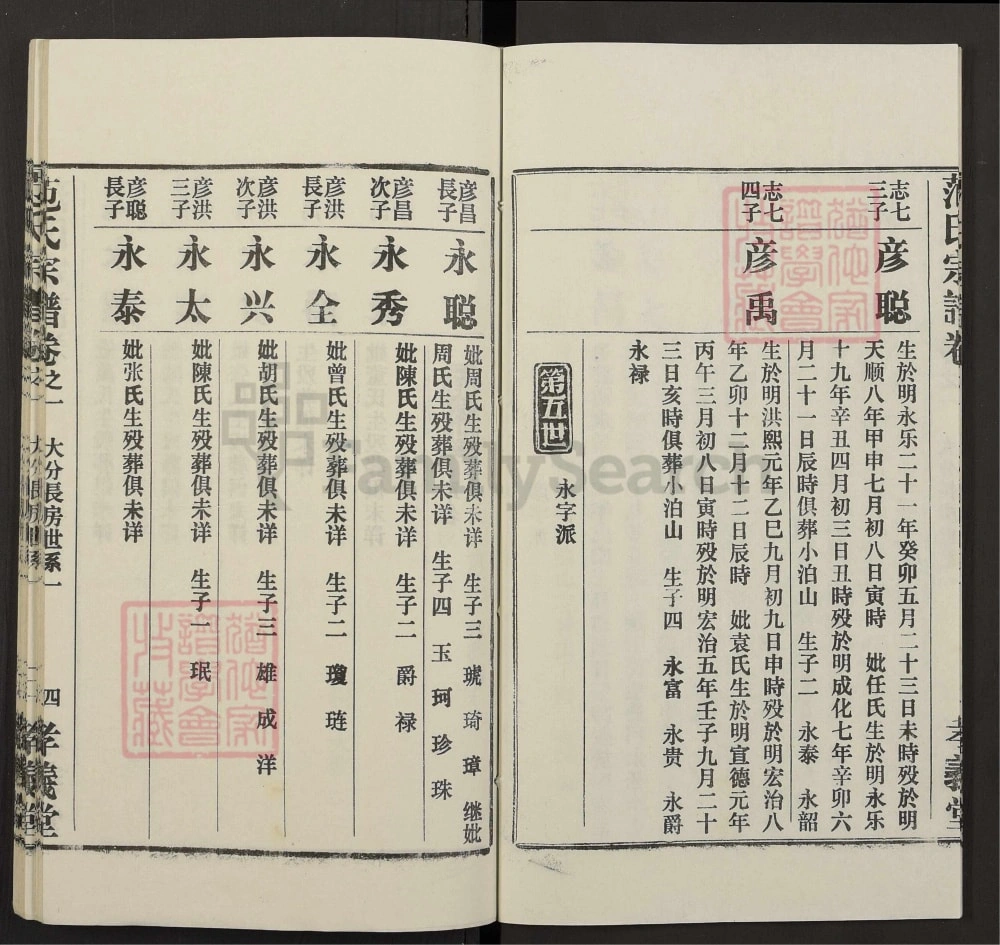 志七
三子
彦聪
生於明永乐二十一年癸卯五月二十三日未時殁於明
天顺八年甲申七月初八日寅時 妣任氏生於明永乐
十九年辛丑四月初三日丑時殁於明成化七年辛卯六
月二十一日辰時俱葬小泊山 生子二 永泰 永韶
志七
四子
彦禹
生於明洪熙元年乙巳九月初九日申時殁於明宏治八
年乙卯十二月十二日辰時 妣袁氏生於明宣德元年
丙午三月初八日寅時殁於明宏治五年壬子九月二十
三日亥時俱葬小泊山 生子四 永富 永贵 永爵
永禄
第五世
永字派
彦昌
長子
永聪
妣周氏生殁葬俱未详 生子三 琥 琦 璋 继妣
周氏生殁葬俱未详 生子四 玉 珂 珍 珠
彦昌
次子
永秀
妣陳氏生殁葬俱未详 生子二 爵 禄
彦洪
長子
永全
妣曾氏生殁葬俱未详 生子二 瓊 琏
彦洪
次子
永兴
妣胡氏生殁葬俱未详 生子三 雄 成 洋
彦洪
三子
永太
妣陳氏生殁葬俱未详 生子一 珉
彦聪
長子
永泰
妣张氏生殁葬俱未详
范氏宗譜卷之一 大分長房世系一 四 孝義堂
FamilySearch